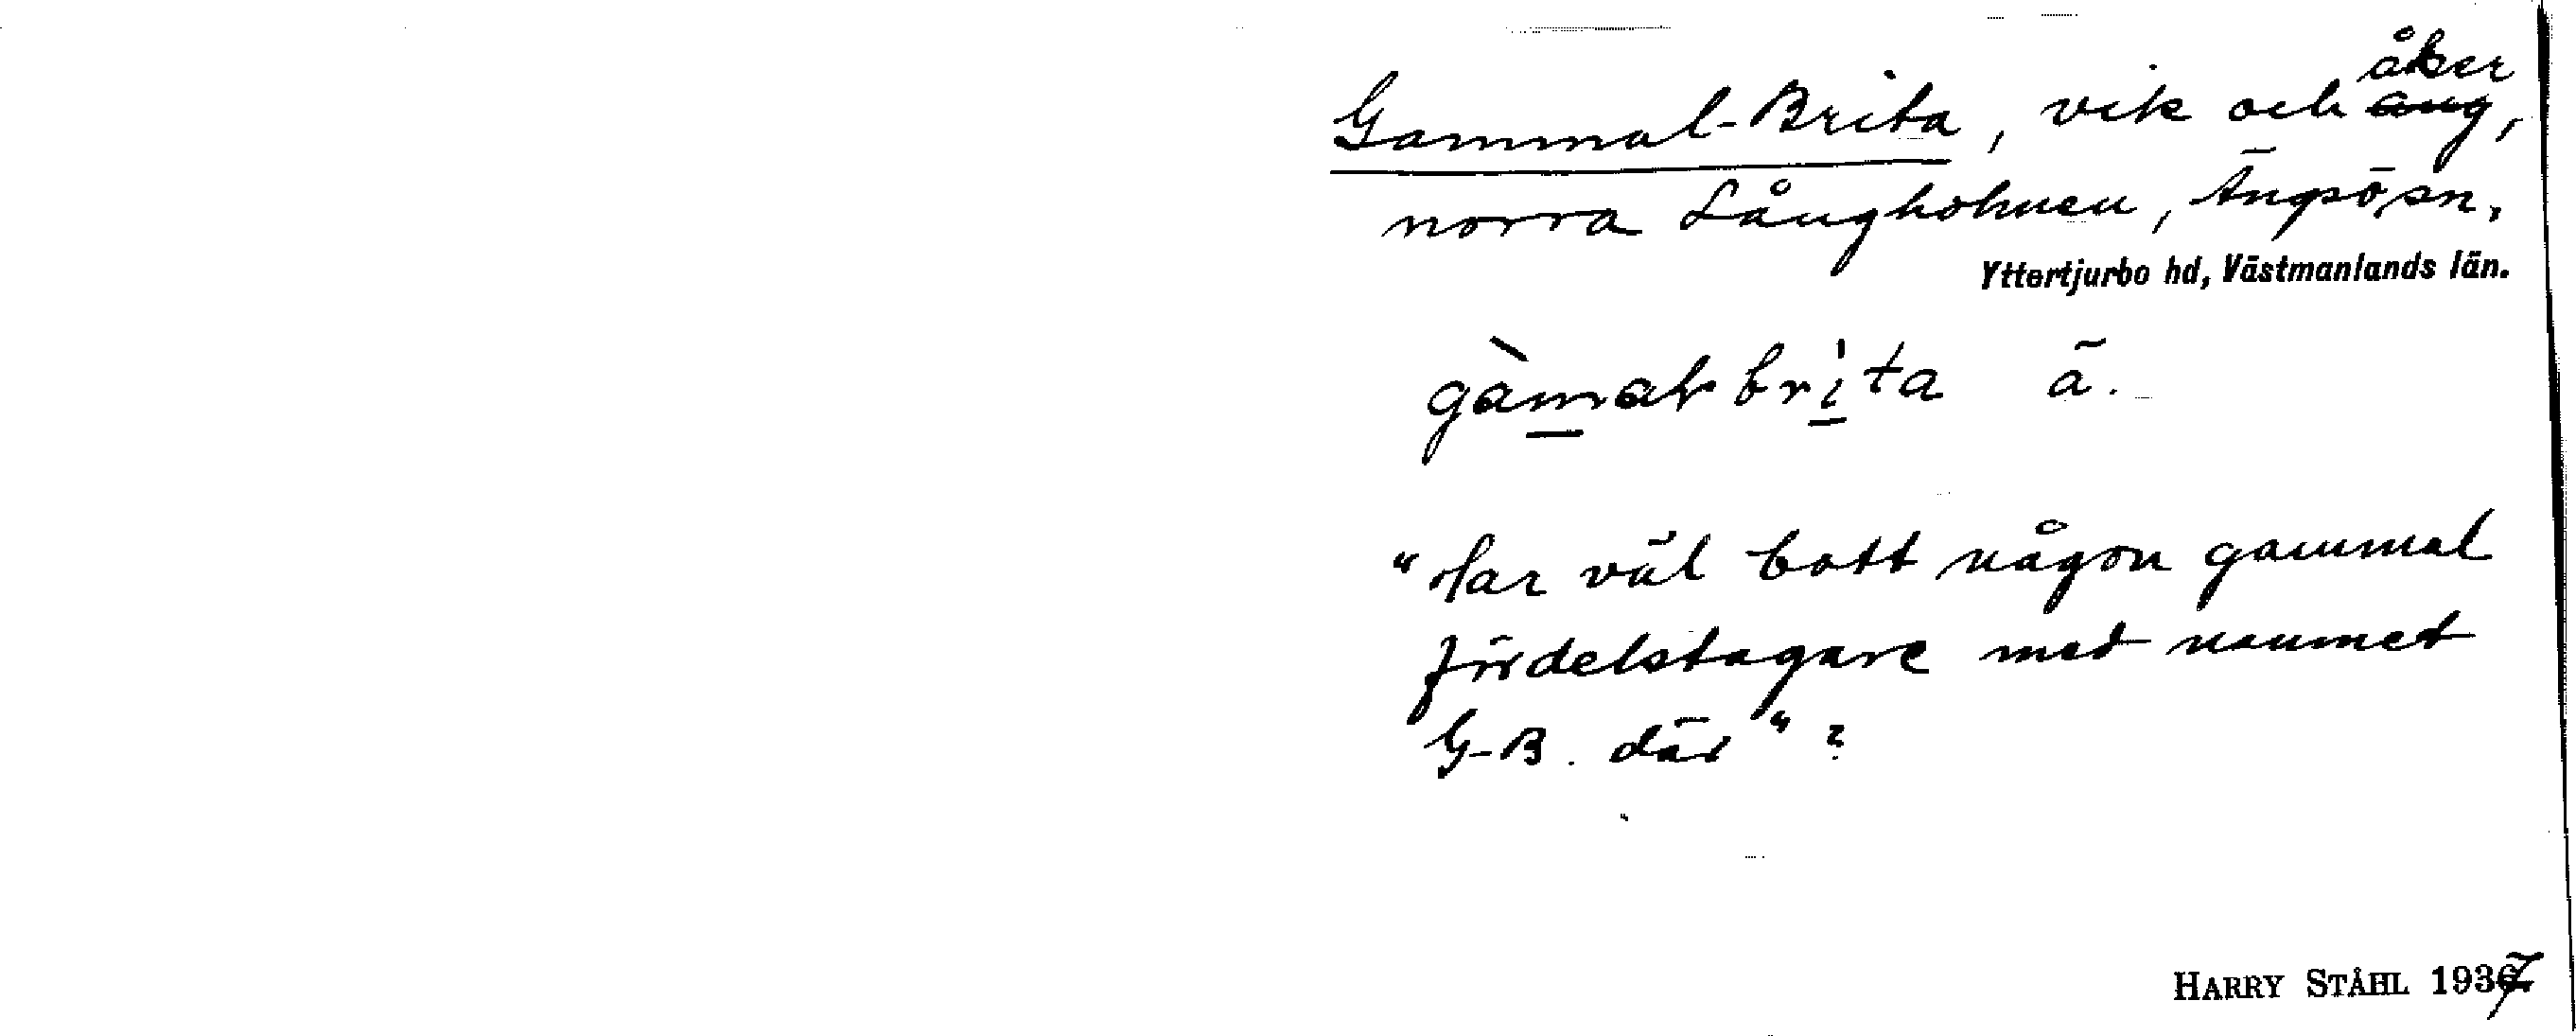 Gammal-Brita, vik och äng, åker
norra Långholmen, Ängsö sn,
Yttertjurbo hd, Västmanlands län.
gàmalbrita ā.
"Har väl bott någon gammal
fördelstagare med namnet
G-B. där"?
HARRY STÅHL 1937